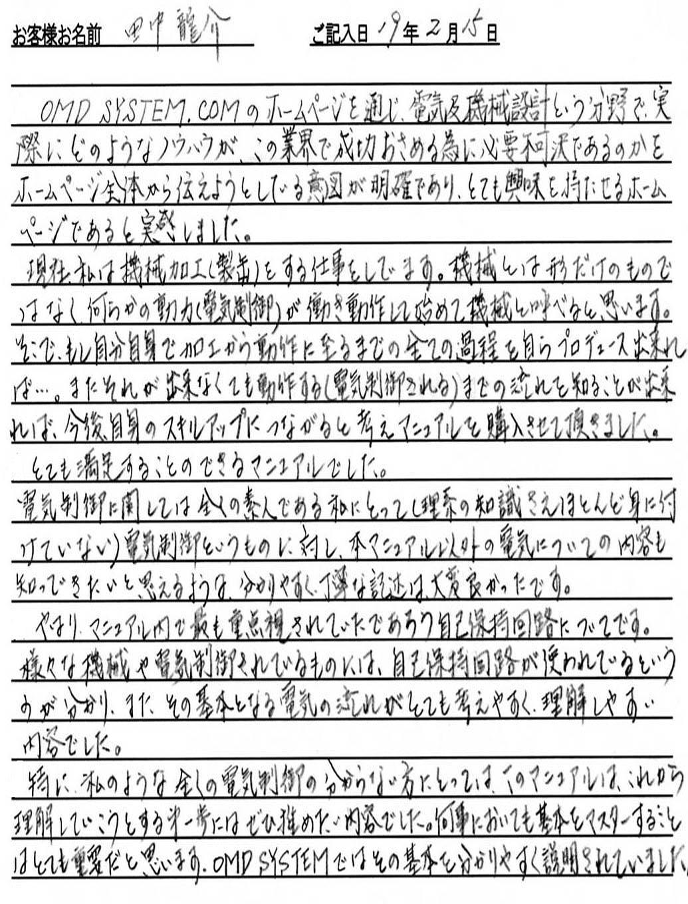 お客様お名前 田中龍介 ご記入日 19年2月15日
OMD SYSTEM.COMのホームページを通じ、電気及機械設計という分野で、実
際にどのようなノウハウが、この業界で成功おさめる為に必要不可決であるのかを
ホームページ全体から伝えようとしている意図が明確であり、とても興味を持たせるホーム
ページであると実感しました。
現在私は機械加工(製缶)をする仕事をしてます。機械とは形だけのもので
はなく、何らかの動力(電気制御)が働き動作して始めて機械と呼べると思います。
そこで、もし自分自身で加工から動作に至るまでの全ての過程を自らプロデュース出来れ
ば…。またそれが出来なくても動作する(電気制御される)までの流れを知ることが出来
れば、今後、自身のスキルアップにつながると考えマニュアルを購入させて頂きました。
とても満足することのできるマニュアルでした。
電気制御に関しては全くの素人である私にとって(理系の知識さえほとんど身に付
けていない)電気制御というものに対し、本マニュアル以外の電気についての内容も
知ってきたいと思えるような、分かりやすく丁寧な記述は大変良かったです。
やはり、マニュアル内で最も重点視されていたであろう自己保持回路についてです。
様々な機械や電気制御されているものには、自己保持回路が使われているという
のが分かり、また、その基本となる電気の流れがとても考えやすく、理解しやすい
内容でした。
特に、私のような全くの電気制御の分からない方にとっては、このマニュアルは、これから
理解していこうとする第一歩にはぜひ進めたい内容でした。何事においても基本をマスターすること
はとても重要だと思います。OMD SYSTEMではその基本を分かりやすく説明されていました。